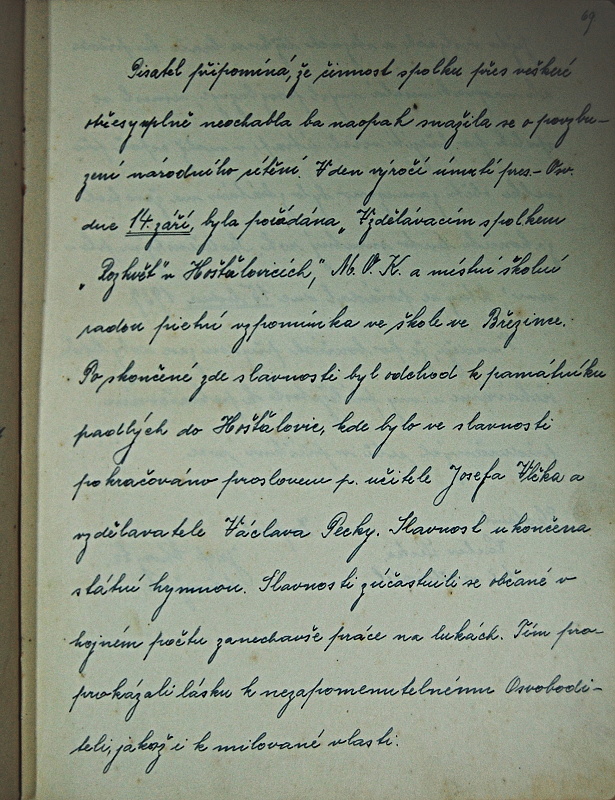 69
Pisatel připomíná, že činnost spolku přes veškeré
otřesy úplně neochabla ba naopak snažila se o povzbu-
zení národního cítění. V den výročí úmrtí pres. Osv.
dne 14. září, byla pořádána „Vzdělávacím spolkem
„Rozkvět" v Hošťálovicích", M. O. K. a místní školní
radou pietní vzpomínka ve škole ve Březince.
Po skončené zde slavnosti byl odchod k památníku
padlých do Hošťálovic, kde bylo ve slavnosti
pokračováno proslovem p. učitele Josefa Vlčka a
vzdělavatele Václava Pecky. Slavnost ukončena
státní hymnou. Slavnosti zúčastnili se občané v
hojném počtu zanechavše práce na lukách. Tím pro-
prokázali lásku k nezapomenutelnému Osvobodi-
teli, jakož i k milované vlasti.